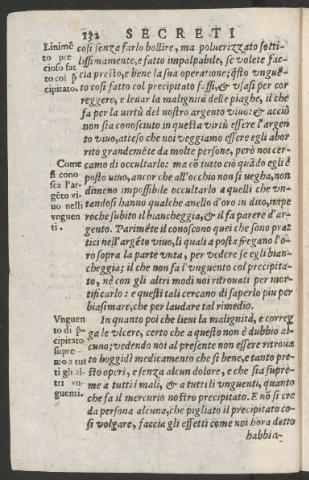 132 SECRETI
Linimẽ
to pre
cioso fat
to col p̃
cipitato.
cosi senza farlo bollire, ma poluerizzato sotti-
lissimamente, e fatto impalpabile, se volete fac-
cia presto, e bene la sua operatione; q̃sto vngue̅-
to cosi fatto col precipitato fassi, & vsasi per cor
reggere, e leuar la malignità delle piaghe, il che
fa per la uirtù del nostro argento viuo: & acciò
non sia conosciuto in questa virtù essere l'argen
to viuo, atteso che noi veggiamo essere egli abor
rito grandemẽte da molte persone, però noi cer-
camo di occultarlo: ma cõ tutto ciò quãdo egli è
Come
si cono-
sca l'ar-
gẽto vi-
uo nelli
vnguen
ti.
posto uiuo, ancor che all'occhio non si uegha, non
dimeno impossibile occultarlo a quelli che vn-
tandosi hanno qualche anello d'oro in dito, impe
roche subito il biancheggia, & il fa parere d'ar-
gento. Parimẽte il conoscono quei che sono prat
tici nell'argẽto uiuo, li quali a posta fregano l'o-
ro sopra la parte vnta, per vedere se egli bian-
cheggia; il che non fa l'vnguento col precipita-
to, nè con gli altri modi noi ritrouati per mor-
tificarlo: e questi tali cercano di saperlo piu per
biasimare, che per laudare tal rimedio.
Vnguen
to di p̃-
cipitato
supre-
mo a tut
ti gli al-
tri vn-
guenti.
In quanto poi che lieui la malignità, e correg
ga le vlcere, certo che a questo non è dubbio al-
cuno; vedendo noi al presente non essere ritroua
to hoggidì medicamento che sì bene, e tanto pre-
sto operi, e senza alcun dolore, e che sia supre-
mo a tutti i mali, & a tutti li vnguenti, quanto
che fa il mercurio nostro precipitato. E nõ si cre
da persona alcuna, che pigliato il precipitato co-
sì volgare, faccia gli effetti come noi hora detto
habbia-